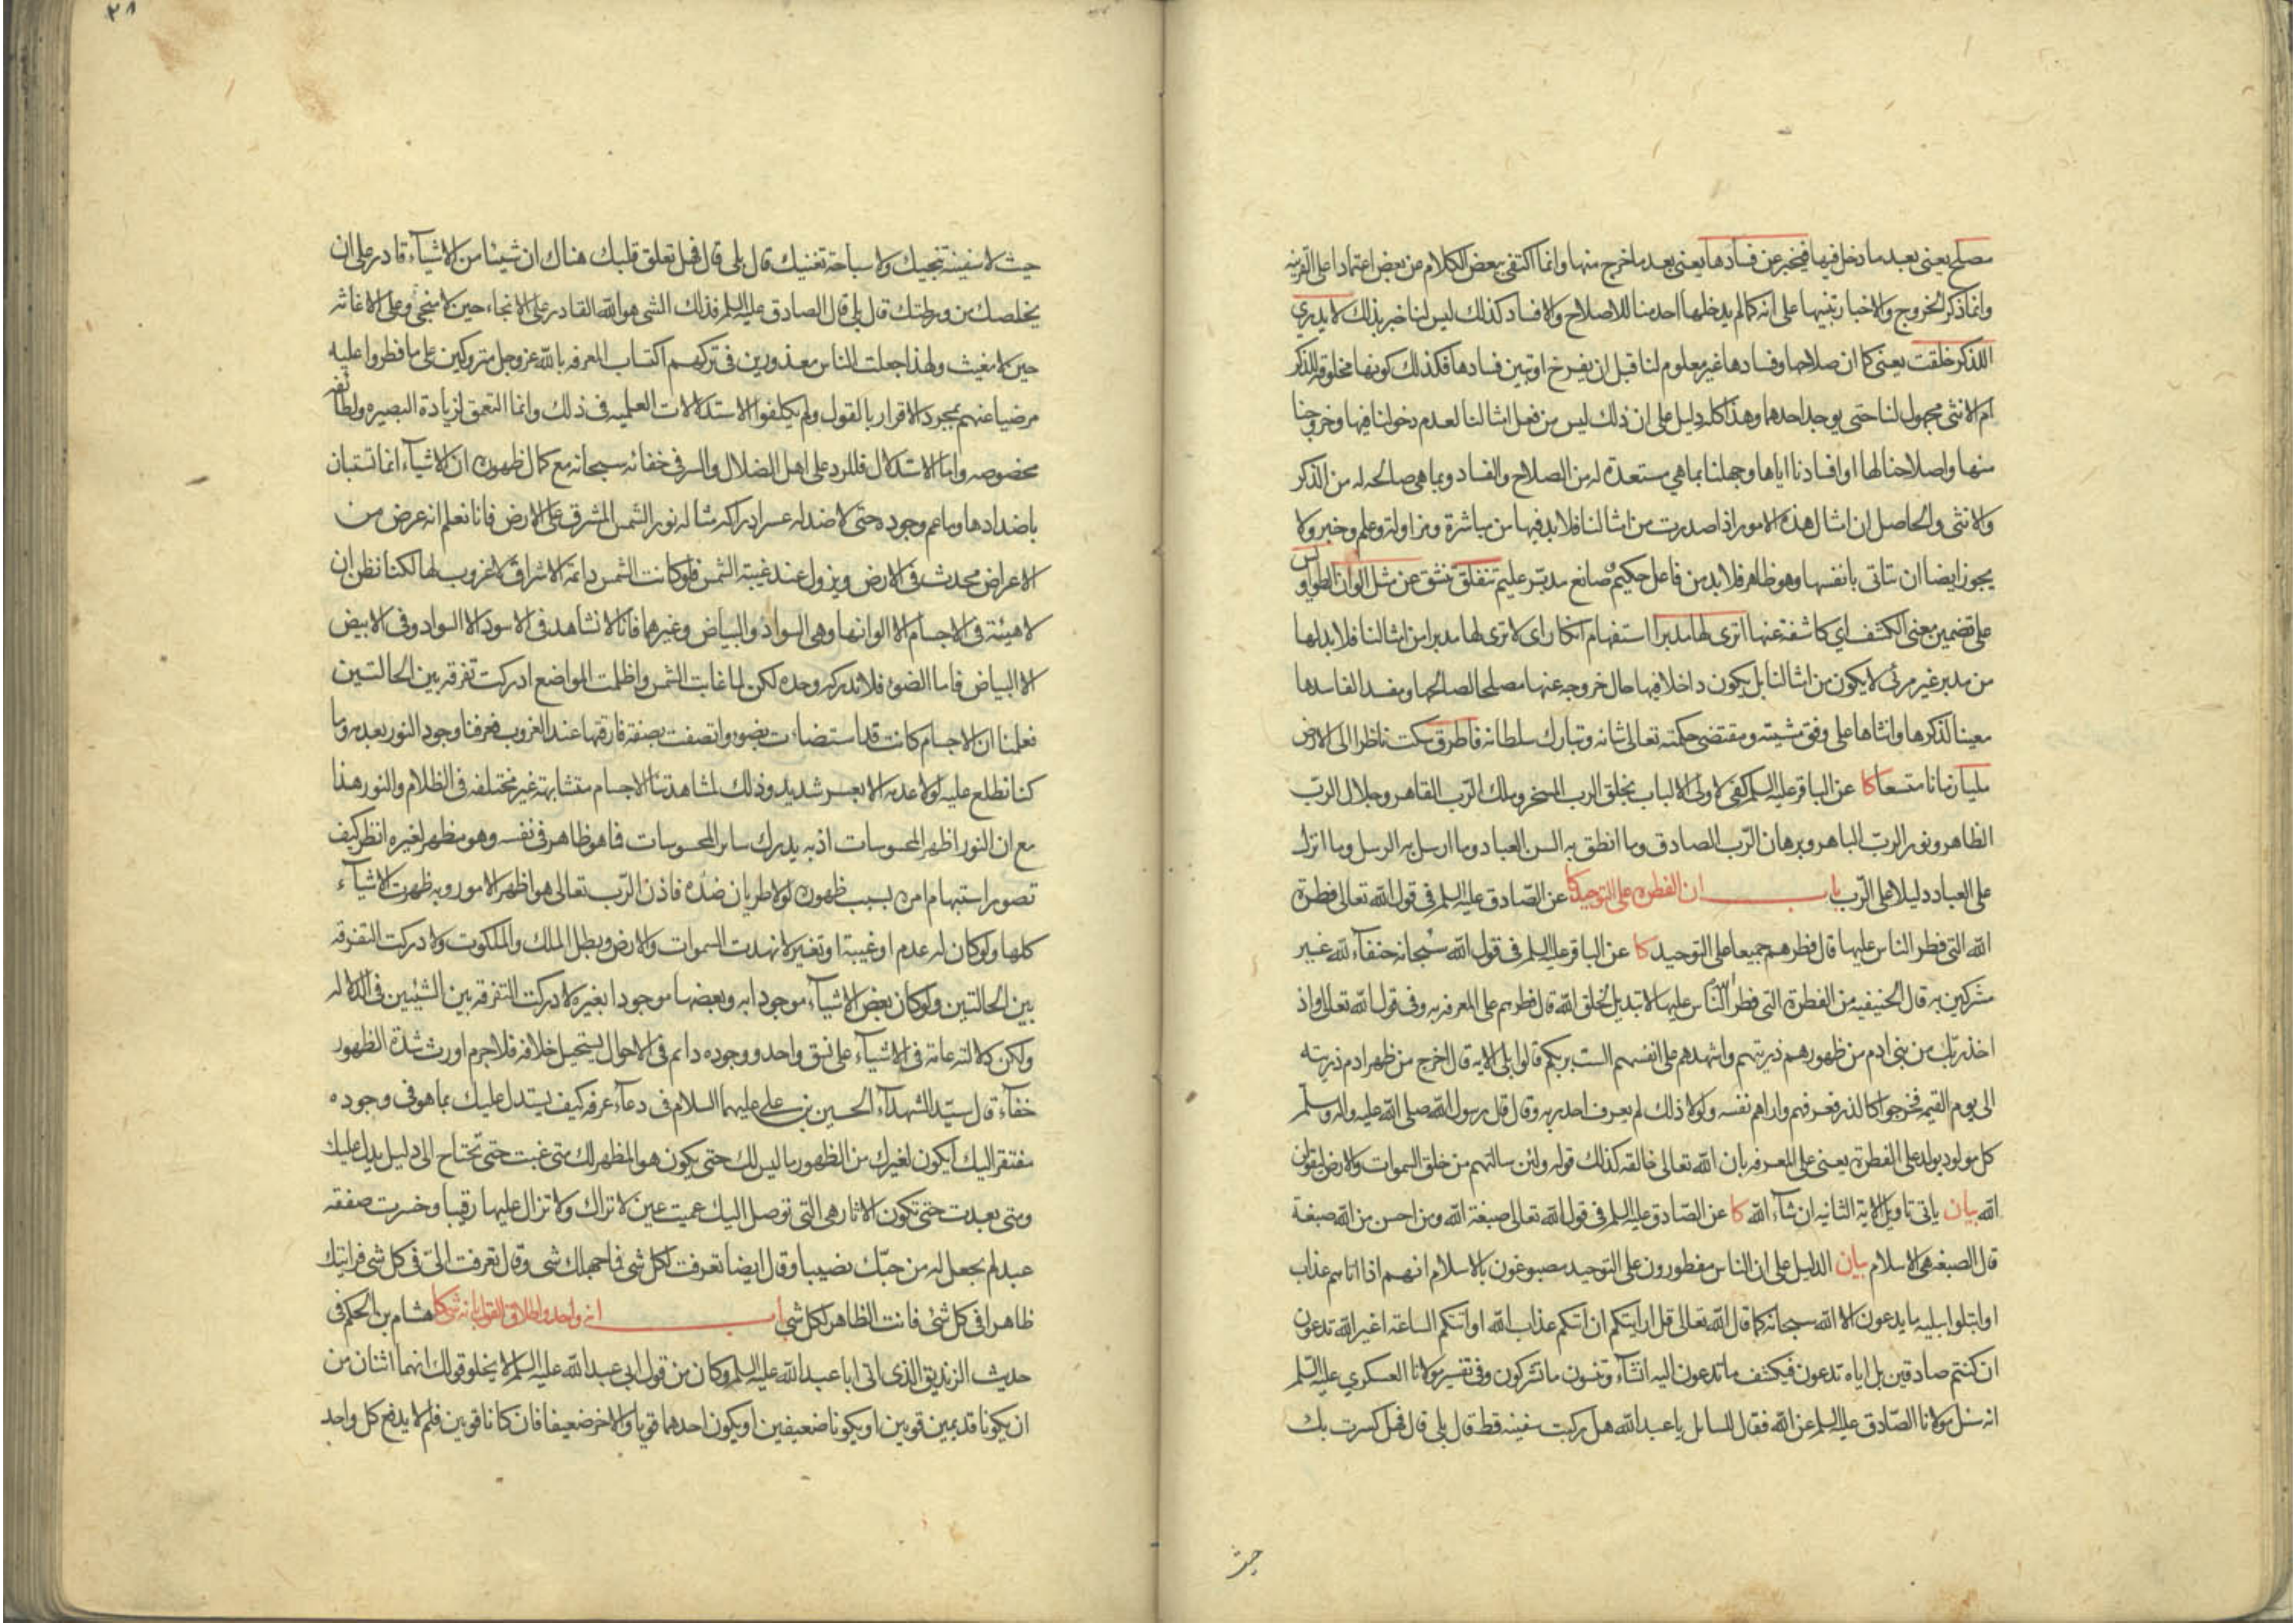 مصلح يعنى بعد ما دخل فيها فيخبر عن فسادها يعنى بعد ما خرج منها وانما اكتفى ببعض الكلام عن بعض اعتمادا على القرينه
وانما ذكر الخروج والاخبار تنبيها على انه كما لم يدخلها احد منا للاصلاح والافساد كذلك ليس لنا خبر بذلك لا يدرى
اللذكر خلقت يعنى كما ان صلاحها وفسادها غير معلوم لنا قبل ان يفرخ او تبين فسادها فكذلك كونها مخلوقة للذكر
ام الانثى مجهول لنا حتى يوجد احدهما وهذا كله دليل على ان ذلك ليس من فعل امثالنا لعدم دخولنا فيها وخروجنا
منها واصلاحنا لها او افسادنا اياها وجهلنا بما هى مستعدة له من الصلاح والفساد وبما هى صالحه له من الذكر
والانثى والحاصل ان امثال هذه الامور اذا صدرت من امثالنا فلا بد فيها من مباشرة ومزاولة وعلم وخبر ولا
يجوز ايضا ان تتاتى بانفسها وهو ظاهر فلا بد من فاعل حكيم وصانع مدبّر عليم تنفلق تنشق عن مثل الوان الطواويس
على تضمين معنى الكشف اي كاشفة عنها اترى لها مدبرا استفهام انكار اى لا ترى لها مدبرا من امثالنا فلا بد لها
من مدبر غير مرئى لا يكون من امثالنا بل يكون داخلا فيها حال خروجه عنها مصلحا لصالحها ومفسدا لفاسدها
معينا لذكرها وانثاها على وفق مشيته ومقتضى حكمته تعالى شانه وتبارك سلطانه فاطرق سكت ناظرا الى الارض
مليا زمانا متسعا كا عن الباقر عليه السلم كفى لاولى الالباب بخلق الرب المسخر وملك الرّب القاهر وجلال الرّب
الظاهر ونور الربّ الباهر وبرهان الرّب الصادق وما انطق به السن العباد وما ارسل به الرسل وما انزل
على العباد دليلا على الرّب باب ان الفطرة على التوحيد كا عن الصّادق عليه السلم فى قول الله تعالى فطرة
الله التى فطر الناس عليها قال فطرهم جميعا على التوحيد كا عن الباقر عليه السلم فى قول الله سبحانه حنفآء لله غير
مشركين به قال الحنيفيه من الفطرة التى فطر الله الناس عليها لا تبديل لخلق الله قال فطرهم على المعرفة به وفى قول الله تعالى واذ
اخذ ربّك من بنى ادم من ظهورهم ذريتهم واشهدهم على انفسهم الست بربكم قالوا بلى الايه قال اخرج من ظهر ادم ذريته
الى يوم القيمه فخرجوا كالذر فعرفهم واراهم نفسه ولولا ذلك لم يعرف احد ربه وقال قال رسول الله صلى الله عليه واله وسلّم
كل مولود يولد على الفطرة يعنى على المعرفه بان الله تعالى خالقه كذلك قوله ولئن سالتهم من خلق السموات والارض ليقولن
الله بيان ياتى تاويل الاية الثانيه ان شآء الله كا عن الصّادق عليه السلم فى قول الله تعالى صبغة الله ومن احسن من الله صبغة
قال الصبغه هى الاسلام بيان الدليل على ان الناس مفطورون على التوحيد مصبوغون بالاسلام انهم اذا اتاهم عذاب
او ابتلوا ببليه ما يدعون الا الله سبحانه كما قال الله تعالى قل ارايتكم ان اتيكم عذاب الله او اتتكم الساعة اغير الله تدعون
ان كنتم صادقين بل اياه تدعون فيكشف ما تدعون اليه ان شآء وتنسون ما تشركون وفى تفسير مولانا العسكري عليه السّلم
انه سئل مولانا الصّادق عليه السلم عن الله فقال للسايل يا عبد الله هل ركبت سفينه قط قال بلى قال فهل كسرت بك
حيث
٣٨
حيث لا سفينة تنجيك ولا سباحة تغنيك قال بلى قال فهل تعلق قلبك هناك ان شيئا من الاشيآء قادر على ان
يخلصك من ورطتك قال بلى قال الصادق عليه السلم فذلك الشى هو الله القادر على الانجاء حين لا منجى وعلى الاغاثه
حين لا مغيث ولهذا جعلت الناس معذورين فى تركهم اكتساب المعرفه بالله عز وجل متروكين على ما فطروا عليه
مرضيا عنهم بمجرد الاقرار بالقول ولم يكلفوا الاستدلالات العلميه فى ذلك وانما التعمق لزيادة البصيره ولطائفة
مخصوصه واما الاستدلال فللرد على اهل الضلال والسر فى خفائه سبحانه مع كمال ظهوره ان الاشيآء انما تستبان
باضدادها وما عم وجوده حتى لا ضد له عسر ادراكه مثاله نور الشمس المشرق على الارض فانا نعلم انه عرض من
الاعراض محدث فى الارض ويزول عند غيبة الشمس فلو كانت الشمس دائمة الاشراق لا غروب لها لكنا نظن ان
لا هيئة فى الاجسام الا الوانها وهى السواد والبياض وغيرهما فانا لا نشاهد فى الاسود الا السواد وفى الابيض
الا البياض فاما الضوء فلا ندركه وحده لكن لما غابت الشمس واظلمت المواضع ادركت تفرقه بين الحالتين
فعلمنا ان الاجسام كانت قد استضاءت بضوء واتصفت بصفة فارقتها عند الغروب فعرفنا وجود النور بعدمه وما
كنا نطلع عليه لولا عدمه الا بعسر شديد وذلك لمشاهدتنا الاجسام متشابهة غير مختلفه فى الظلام والنور هذا
مع ان النور اظهر المحسوسات اذ به يدرك ساير المحسوسات فما هو ظاهر فى نفسه وهو مظهر لغيره انظر كيف
تصور استبهام امره بسبب ظهوره لولا طريان ضدّه فاذن الرّب تعالى هو اظهر الامور وبه ظهرت الاشيآء
كلها ولو كان له عدم او غيبة او تغير لانهدت السموات والارض وبطل الملك والملكوت ولادركت التفرقه
بين الحالتين ولو كان بعض الاشيآء موجودا به وبعضها موجودا بغيره لادركت التفرقه بين الشيئين فى الدلاله
ولكن دلالته عامة فى الاشيآء على نسق واحد ووجوده دائم فى الاحوال يستحيل خلافه فلا جرم اورث شدة الظهور
خفآء قال سيّد الشهدآء الحسين بن على عليهما السلام فى دعآء عرفه كيف يستدل عليك بما هو فى وجوده
مفتقر اليك ايكون لغيرك من الظهور ما ليس لك حتى يكون هو المظهر لك متى غبت حتى تحتاج الى دليل يدل عليك
ومتى بعدت حتى تكون الاثار هى التى توصل اليك عميت عين لا تراك ولا تزال عليها رقيبا وخسرت صفقه
عبد لم يجعل له من حبّك نصيبا وقال ايضا تعرفت لكل شى فما جهلك شى وقال تعرفت الىّ فى كل شى فرايتك
ظاهرا فى كل شئ فانت الظاهر لكل شى باب انه واحد واطلاق القول بانه شى كا هشام بن الحكم فى
حديث الزنديق الذى اتى ابا عبد الله عليه السلم وكان من قول ابى عبد الله عليه السلم لا يخلو قولك انهما اثنان من
ان يكونا قديمين قويين او يكونا ضعيفين او يكون احدهما قويا والاخر ضعيفا فان كانا قويين فلم لا يدفع كل واحد